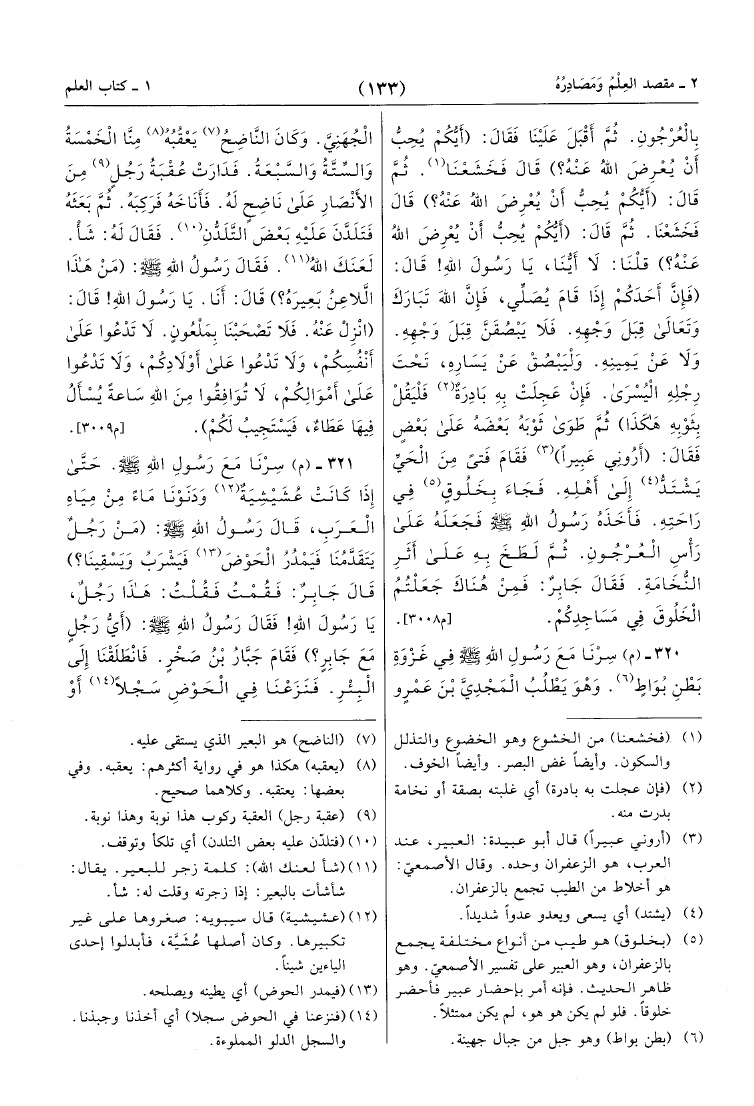 ٢ ـ مقصد العِلْمُ وَمَصَادِرُهُ
(١٣٣)
١ ـ كتاب العلم
بِالْعُرْجُونِ. ثُمَّ أَقْبَلَ عَلَيْنَا فَقَالَ: (أَيُّكُمْ يُحِبُّ
أَنْ يُعْرِضَ اللهُ عَنْهُ؟) قَالَ فَخَشَعْنَا(١). ثُمَّ
قَالَ: (أَيُّكُمْ يُحِبُّ أَنْ يُعْرِضَ اللهُ عَنْهُ؟) قَالَ
فَخَشَعْنَا. ثُمَّ قَالَ: (أَيُّكُمْ يُحِبُّ أَنْ يُعْرِضَ اللهُ
عَنْهُ؟) قلْنَا: لَا أَيُّنَا، يَا رَسُولَ اللهِ! قَالَ:
(فَإِنَّ أَحَدَكُمْ إِذَا قَامَ يُصَلِّي، فَإِنَّ اللهَ تَبَارَكَ
وَتَعَالَىٰ قِبَلَ وَجْهِهِ. فَلَا يَبْصُقَنَّ قِبَلَ وَجْهِهِ.
وَلَا عَنْ يَمِينِهِ. وَلْيَبْصُقْ عَنْ يَسَارِهِ، تَحْتَ
رِجْلِهِ الْيُسْرَىٰ. فَإِنْ عَجِلَتْ بِهِ بَادِرَةٌ(٢) فَلْيَقُلْ
بِثَوْبِهِ هٰكَذَا) ثُمَّ طَوَىٰ ثَوْبَهُ بَعْضَهُ عَلَىٰ بَعْضٍ
فَقَالَ: (أَرُونِي عَبِيراً)(٣) فَقَامَ فَتىً مِنَ الْحَيِّ
يَشْتَدُّ(٤) إِلَىٰ أَهْلِهِ. فَجَاءَ بِخَلُوقٍ(٥) فِي
رَاحَتِهِ. فَأَخَذَهُ رَسُولُ اللهِ ﷺ فَجَعَلَهُ عَلَىٰ
رَأْسِ الْعُرْجُونِ. ثُمَّ لَطَخَ بِهِ عَلَىٰ أَثَرِ
النُّخَامَةِ. فَقَالَ جَابِرٌ: فَمِنْ هُنَاكَ جَعَلْتُمُ
الْخَلُوقَ فِي مَسَاجِدِكُمْ. [م٣٠٠٨].
٣٢٠ـ (م) سِرْنَا مَعَ رَسُولِ اللهِ ﷺ فِي غَزْوَةِ
بَطْنِ بُوَاطٍ(٦). وَهْوَ يَطْلُبُ الْمَجْدِيَّ بْنَ عَمْرٍو
(١) (فخشعنا) من الخشوع وهو الخضوع والتذلل
والسكون. وأيضاً غض البصر. وأيضاً الخوف.
(٢) (فإن عجلت به بادرة) أي غلبته بصقة أو نخامة
بدرت منه.
(٣) (أروني عبيراً) قال أبو عبيدة: العبير، عند
العرب، هو الزعفران وحده. وقال الأصمعيّ:
هو أخلاط من الطيب تجمع بالزعفران.
(٤) (يشتد) أي يسعى ويعدو عدواً شديداً.
(٥) (بخلوق) هو طيب من أنواع مختلفة يجمع
بالزعفران، وهو العبير على تفسير الأصمعيّ. وهو
ظاهر الحديث. فإنه أمر بإحضار عبير فأحضر
خلوقاً. فلو لم يكن هو هو، لم يكن ممتثلاً.
(٦) (بطن بواط) وهو جبل من جبال جهينة.
الْجُهَنِيَّ. وَكَانَ النَّاضِحُ(٧) يَعْقُبُهُ(٨) مِنَّا الْخَمْسَةُ
وَالسِّتَّةُ وَالسَّبْعَةُ. فَدَارَتْ عُقْبَةُ رَجُلٍ(٩) مِنَ
الأَنْصَارِ عَلَىٰ نَاضِحٍ لَهُ. فَأَنَاخَهُ فَرَكِبَهُ. ثُمَّ بَعَثَهُ
فَتَلَدَّنَ عَلَيْهِ بَعْضَ التَّلَدُّنِ(١٠). فَقَالَ لَهُ: شَأْ.
لَعَنَكَ اللهُ(١١). فَقَالَ رَسُولُ اللهِ ﷺ: (مَنْ هٰذَا
الَّلاعِنُ بَعِيرَهُ؟) قَالَ: أَنَا. يَا رَسُولَ اللهِ! قَالَ:
(انْزِلْ عَنْهُ. فَلَا تَصْحَبْنَا بِمَلْعُونٍ. لَا تَدْعُوا عَلَىٰ
أَنْفُسِكُمْ، وَلَا تَدْعُوا عَلَىٰ أَوْلَادِكُمْ، وَلَا تَدْعُوا
عَلَىٰ أَمْوَالِكُمْ، لَا تُوَافِقُوا مِنَ اللهِ سَاعَةً يُسْأَلُ
فِيهَا عَطَاءٌ، فَيَسْتَجِيبُ لَكُمْ). [م٣٠٠٩].
٣٢١ـ (م) سِرْنَا مَعَ رَسُولِ اللهِ ﷺ. حَتَّىٰ
إِذَا كَانَتْ عُشَيْشِيَةٌ(١٢) وَدَنَوْنَا مَاءً مِنْ مِيَاهِ
الْعَرَبِ، قَالَ رَسُولُ اللهِ ﷺ: (مَنْ رَجُلٌ
يَتَقَدَّمُنَا فَيَمْدُرُ الْحَوْضَ(١٣) فَيَشْرَبُ وَيَسْقِينَا؟)
قَالَ جَابِرٌ: فَقُمْتُ فَقُلْتُ: هٰذَا رَجُلٌ،
يَا رَسُولَ اللهِ! فَقَالَ رَسُولُ اللهِ ﷺ: (أَيُّ رَجُلٍ
مَعَ جَابِرٍ؟) فَقَامَ جَبَّارُ بْنُ صَخْرٍ. فَانْطَلَقْنَا إِلَى
الْبِئْرِ. فَنَزَعْنَا فِي الْحَوْضِ سَجْلاً(١٤) أَوْ
(٧) (الناضح) هو البعير الذي يستقى عليه.
(٨) (يعقبه) هكذا هو في رواية أكثرهم: يعقبه. وفي
بعضها: يعتقبه. وكلاهما صحيح.
(٩) (عقبة رجل) العقبة ركوب هذا نوبة وهذا نوبة.
(١٠) (فتلدّن عليه بعض التلدن) أي تلكأ وتوقف.
(١١) (شأ لعنك الله): كلمة زجر للبعير. يقال:
شأشأت بالبعير: إذا زجرته وقلت له: شأ.
(١٢) (عشيشية) قال سيبويه: صغروها على غير
تكبيرها. وكان أصلها عُشَيَّة، فأبدلوا إحدى
الياءين شيناً.
(١٣) (فيمدر الحوض) أي يطينه ويصلحه.
(١٤) (فنزعنا في الحوض سجلا) أي أخذنا وجبذنا.
والسجل الدلو المملوءة.